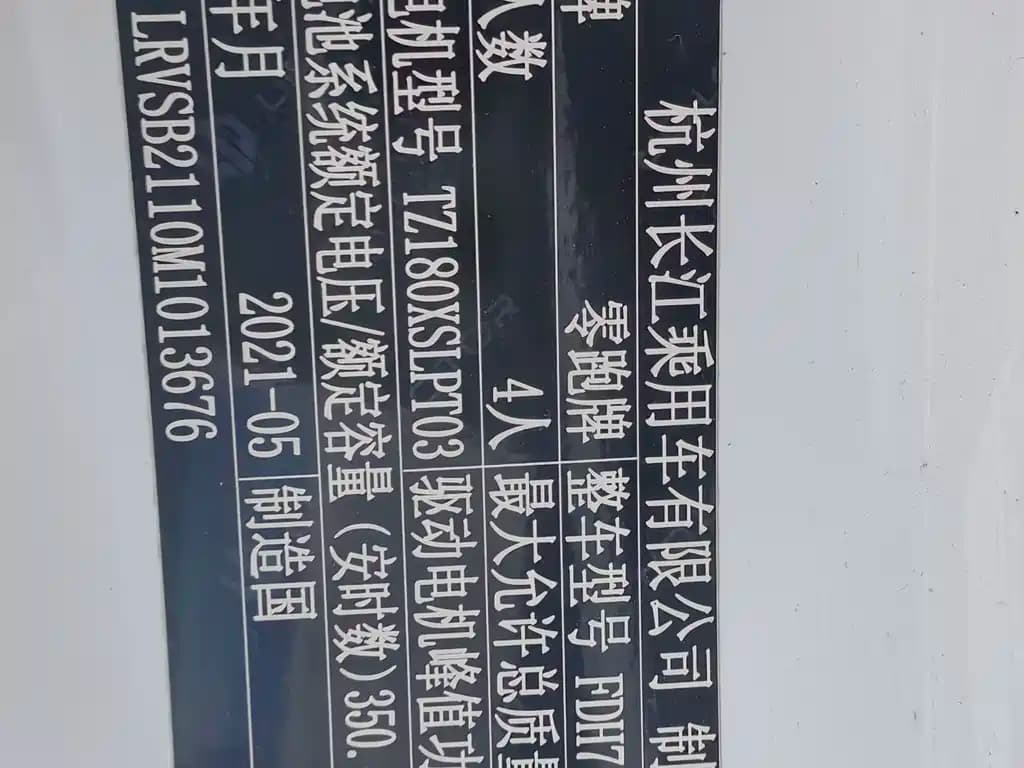 杭州长江乘用车有限公司 制
牌 零跑牌 整车型号 FDH7
人数 4人 最大允许总质量
电机型号 TZ180XSLPT03 驱动电机峰值功
池系统额定电压/额定容量(安时数)350.
年月 2021-05 制造国
LRVSB2110M1013676